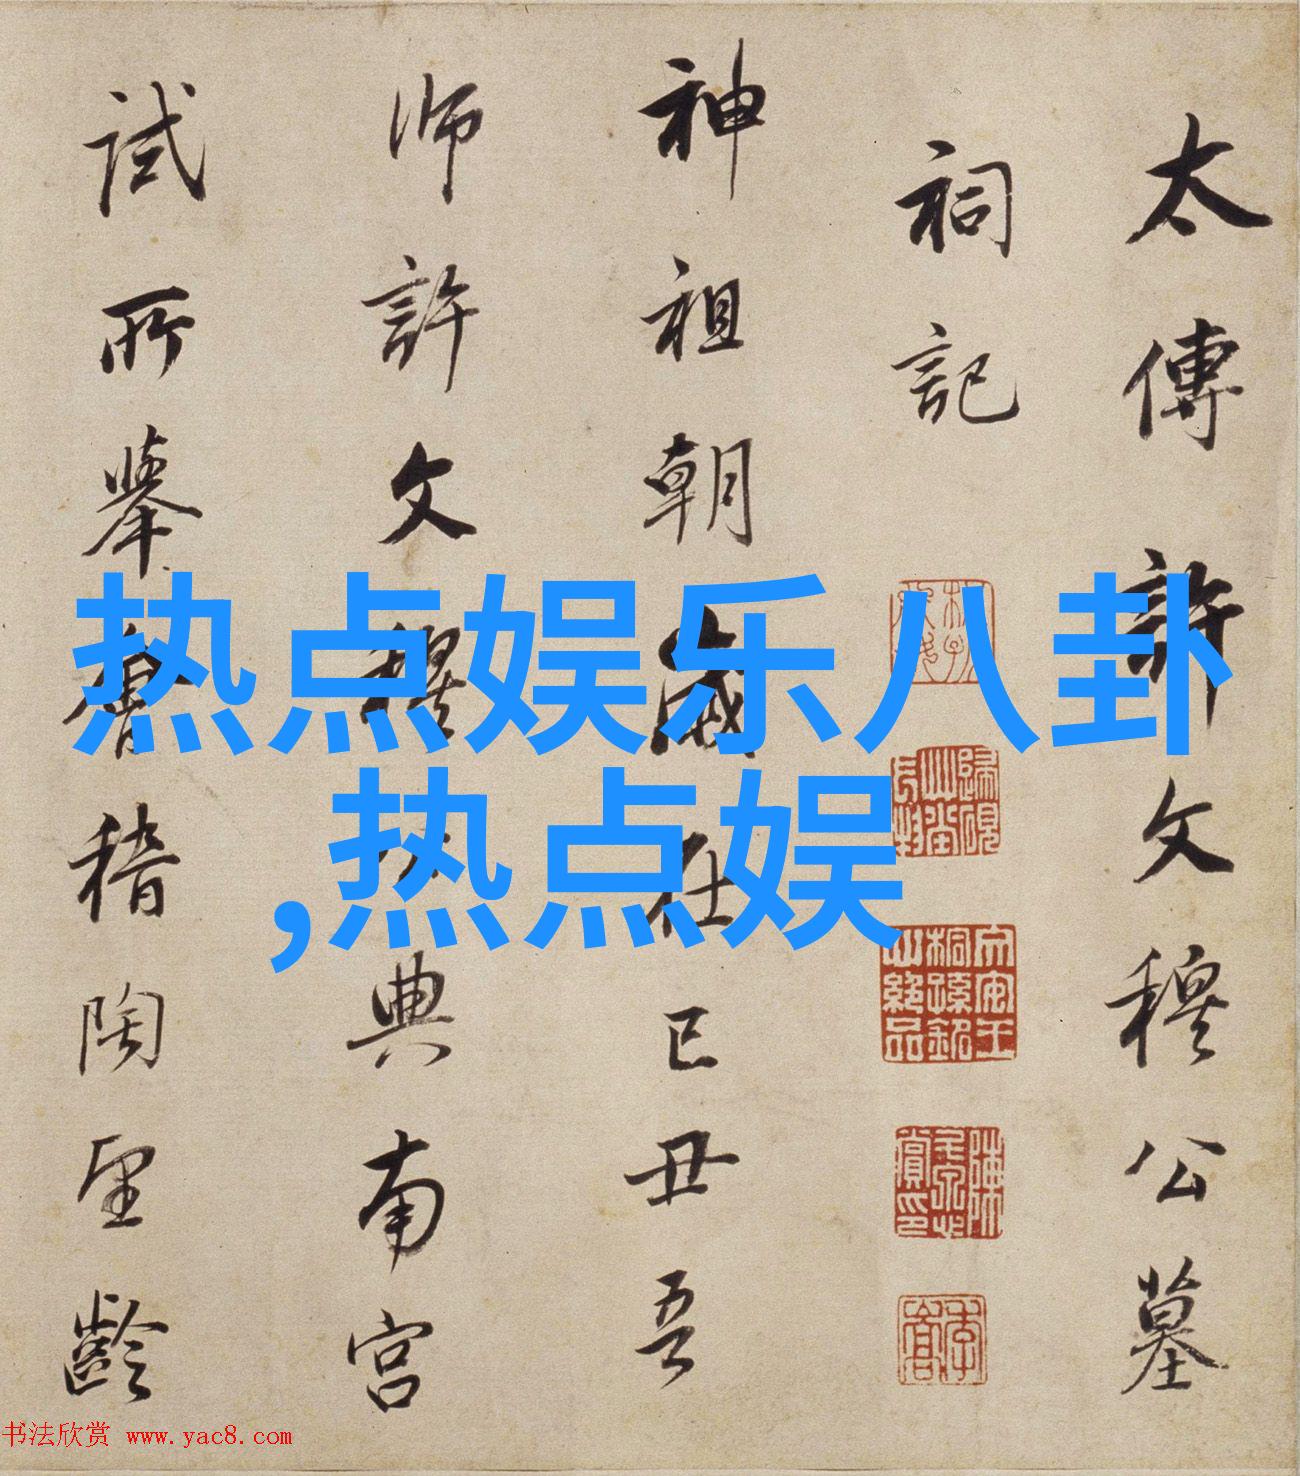 太傳許文穆公墓
祠記
神祖朝歲在已丑吾
師許文穆公典南宮
試所舉會稽陶望齡
热点娱乐八卦
,热点娱
书法欣赏 www.yac8.com